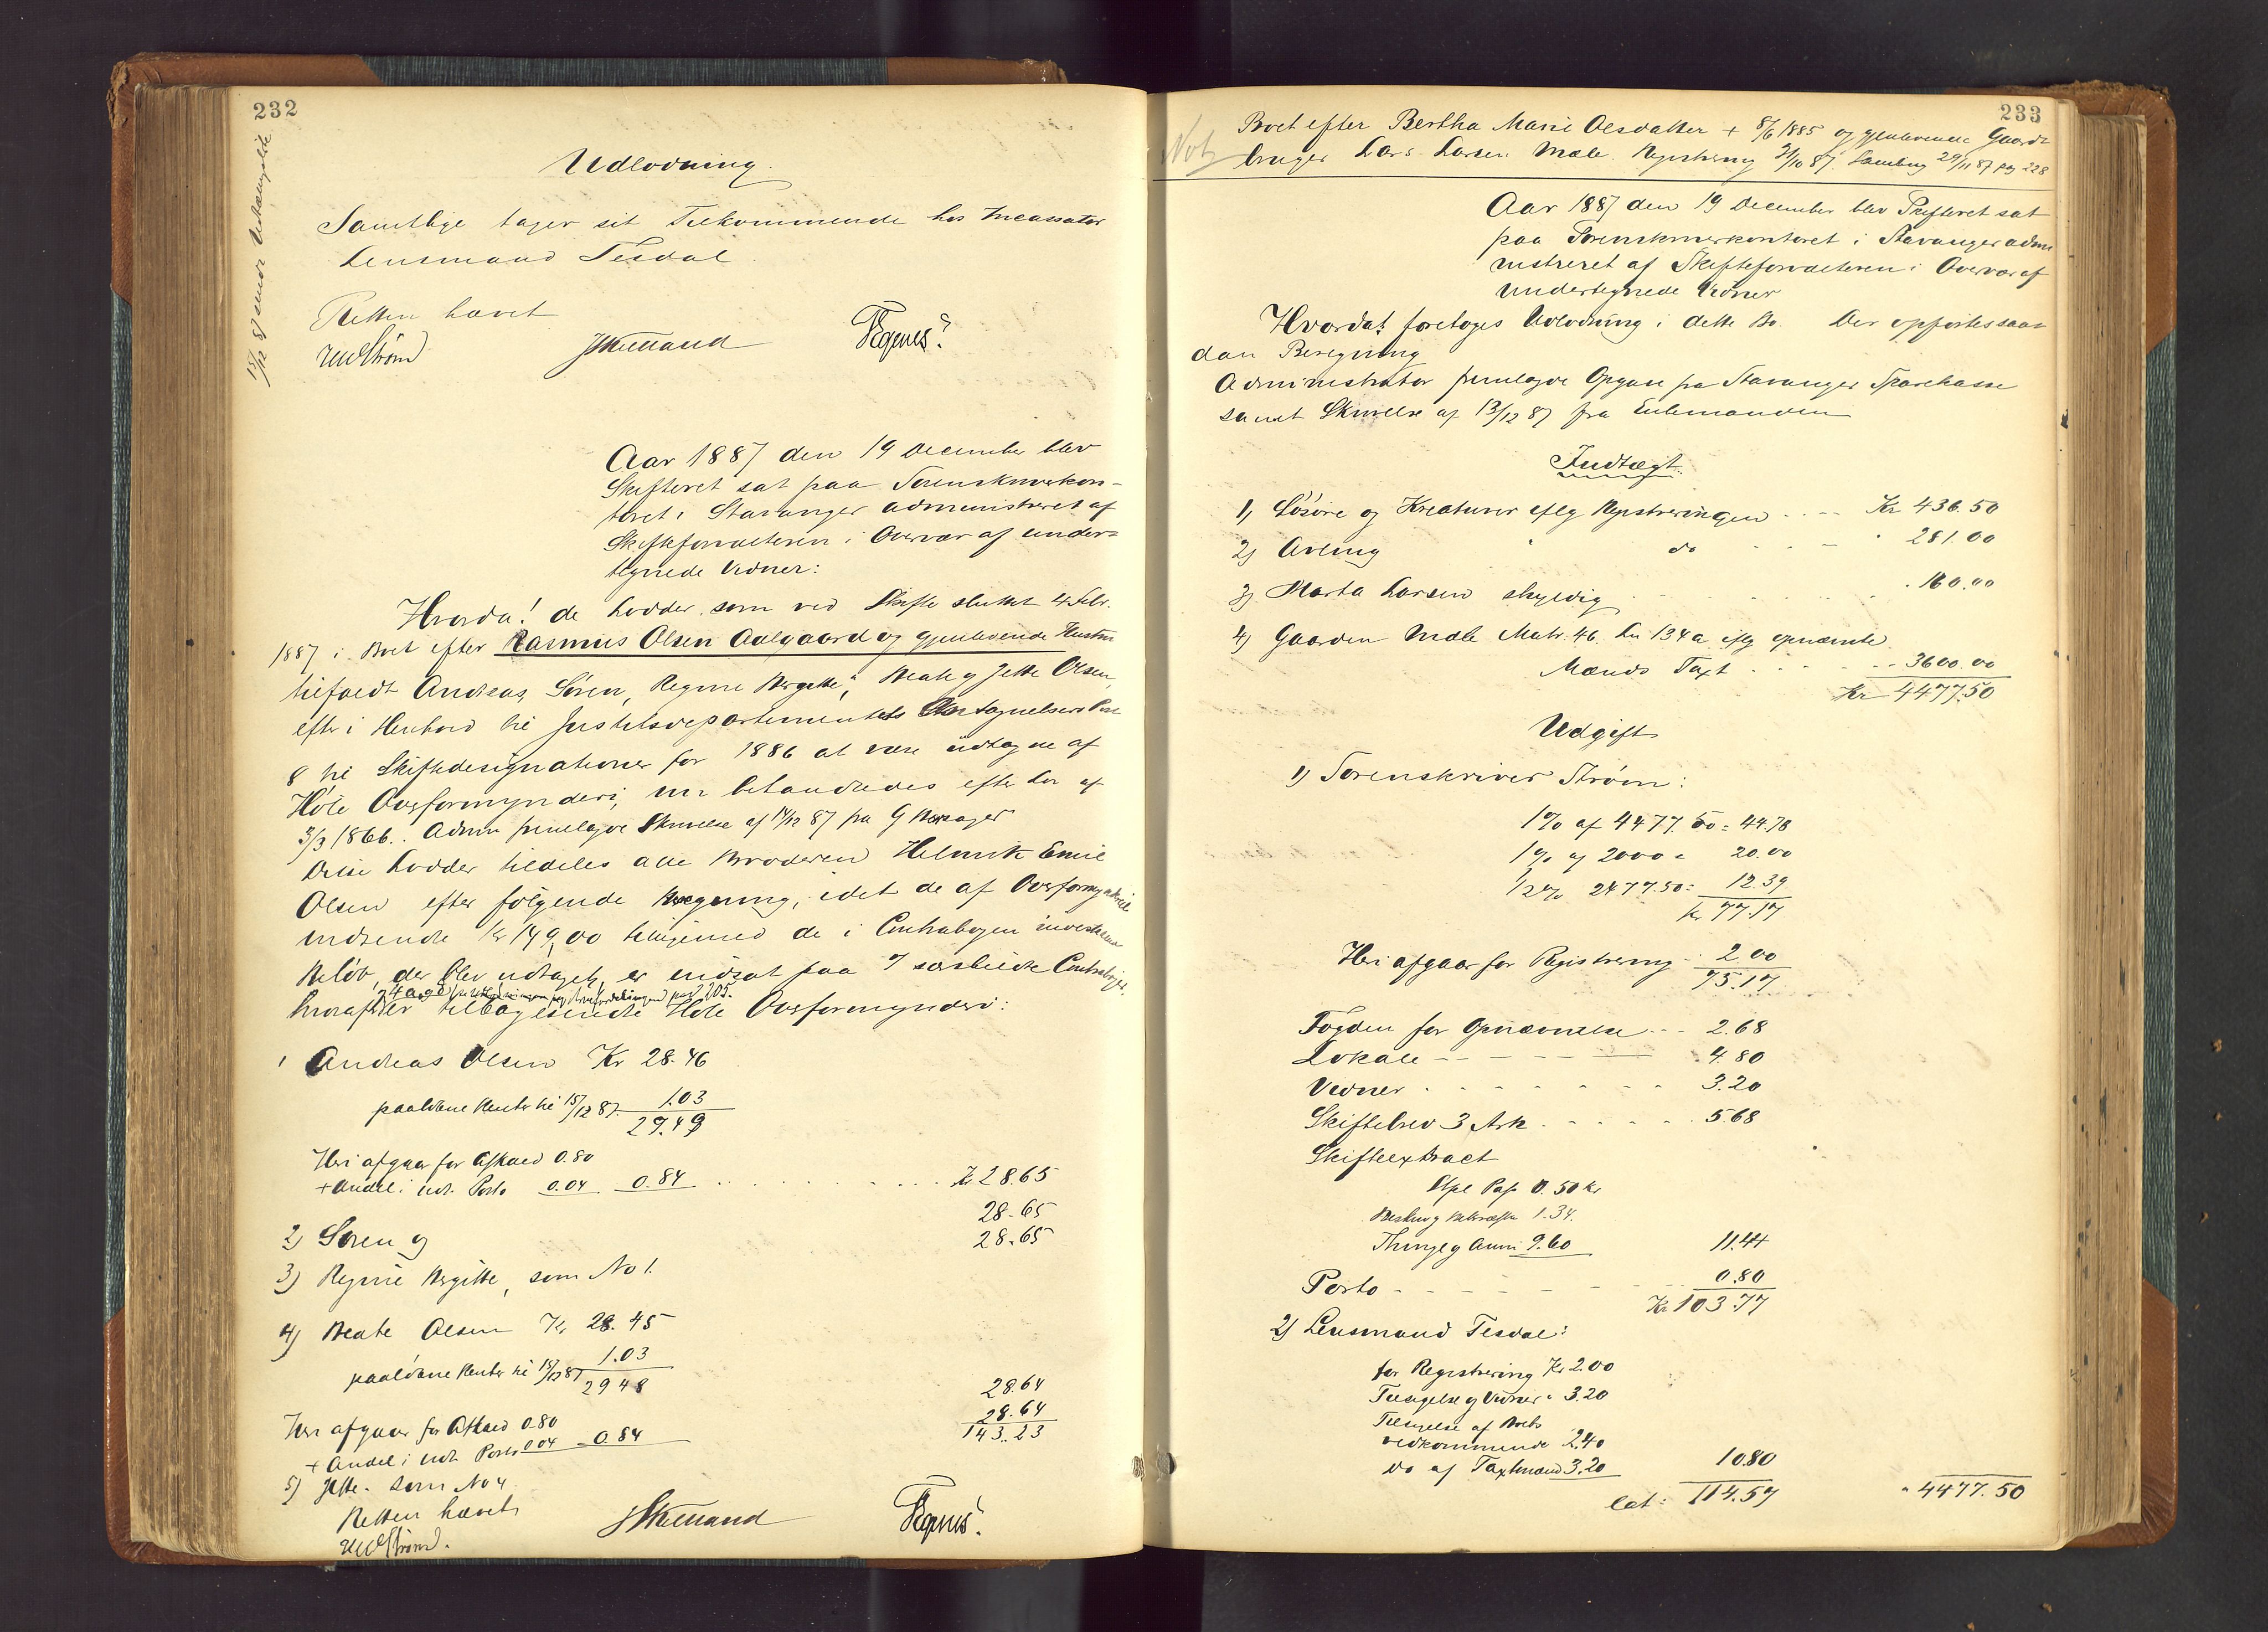 232
15/12 87 sendt
Udlodning
Samtlige tager sit Tilkommende hos Incassator
Lensmand Tesdal.
Retten hævet
EWStrøm JSkulland Tegnes?
Aar 1887 den 19 December blev
Skifteret sat paa Sorenskriverkon-
toret i Stavanger administreret af
Skifteforvalteren i Overvær af under-
tegnede Vidner:
Hvorda! de Lodder som ved Skifte sluttet 4 Febr.
1887 i Boet efter Rasmus Olsen Aalgaard og gjenlevende Hustru
tilfaldt Andreas, Søren, Regine Bergitte, Beate og Jette Olsen,
efter i Henhold til Justitsdepartementets Antegnelsers Post
8 til Skiftedesignationer for 1886 at være udtagne af
Høle Overformynderi, nu behandledes efter Lov af
3/3 1866. Adm fremlagde Skrivelse af 14/12 87 fra G
Disse Lodder tildeles alle Broderen Helmik Emil
Olsen efter følgende Beregning, idet de af Overformynderiet
indsendte Kr 149,00 tilligemed de i Contrabogen
Beløb, der blev udtaget, er indsat paa 7 særskilte Contrabøger,
hvorefter tilbagesendte Høle Overformynderi:
1 Andreas Olsen Kr 28.46
paaløbne Renter til 15/12 87 1.03
29.49
Heri afgaar for Afkald 0.80
+ Andel i udl. Porto 0.04 0.84 Kr 28.65
28.65
2) Søren og 28.65
3) Regine Bergitte, som No 1.
4) Beate Olsen Kr 28.45
paaløbne Renter til 15/12 87 1.03
29 48
28.64
Heri afgaar for Afkald 0.80 28.64
+ Andel i udl. Porto 0.04 0.84 143.23
5) Jette. som No 4
Retten hævet
EWStrøm. JSkulland Tegnes?
233
Notz
Boet efter Bertha Marie Olsdatter + 8/6 1885 og gjenlevende Gaard-
bruger Lars Larsen Mæle. Registrering 31/10 87. Samling 29/11 87 pag 228
Aar 1887 den 19 December blev Skifteret sat
paa Sorenskriverkontoret i Stavanger admi
nistreret af Skifteforvalteren i Overvær af
undertegnede Vidner
Hvorda! foretoges Udlodning i dette Bo. Der opførtes saa-
dan Beregning
Administrator fremlagde Opgave fra Stavanger Sparekasse
samt Skrivelse af 13/12 87 fra Enkemanden
Indtægt.
1) Løsøre og Kreaturer iflg Registreringen Kr 436.50
2) Avling do 281.00
3) Marta Larsen skyldig 160.00
4) Gaarden Mæle Matr. 46. Ln 134a iflg opnævnte
Mænds Taxt 3600.00
Kr 4477.50
Udgift
1) Sorenskriver Strøm:
1% af 4477.50 = 44.78
1% af 2000 = 20.00
1/2 % 2477.50 = 12.39
Kr 77.17
Heri afgaar for Registrering 2.00
75.17
Fogden for Opnævnelse 2.68
Lokale 4.80
Vidner 3.20
Skiftebrev 3 Ark 5.68
Skifteextract
Stpl Pap 0.50 kr
Beskr og Bekræft 1.34.
Thingl og Ann 9.60 11.44
Porto 0.80
Kr 103.77
2) Lensmand Tesdal:
for Registrering Kr 2.00
Tilsigelse af Vidner 3.20
Tilsigelse af Boets
vedkommende 2.40
Do af Taxtmænd 3.20 10.80
lat: 114.57 4477.50